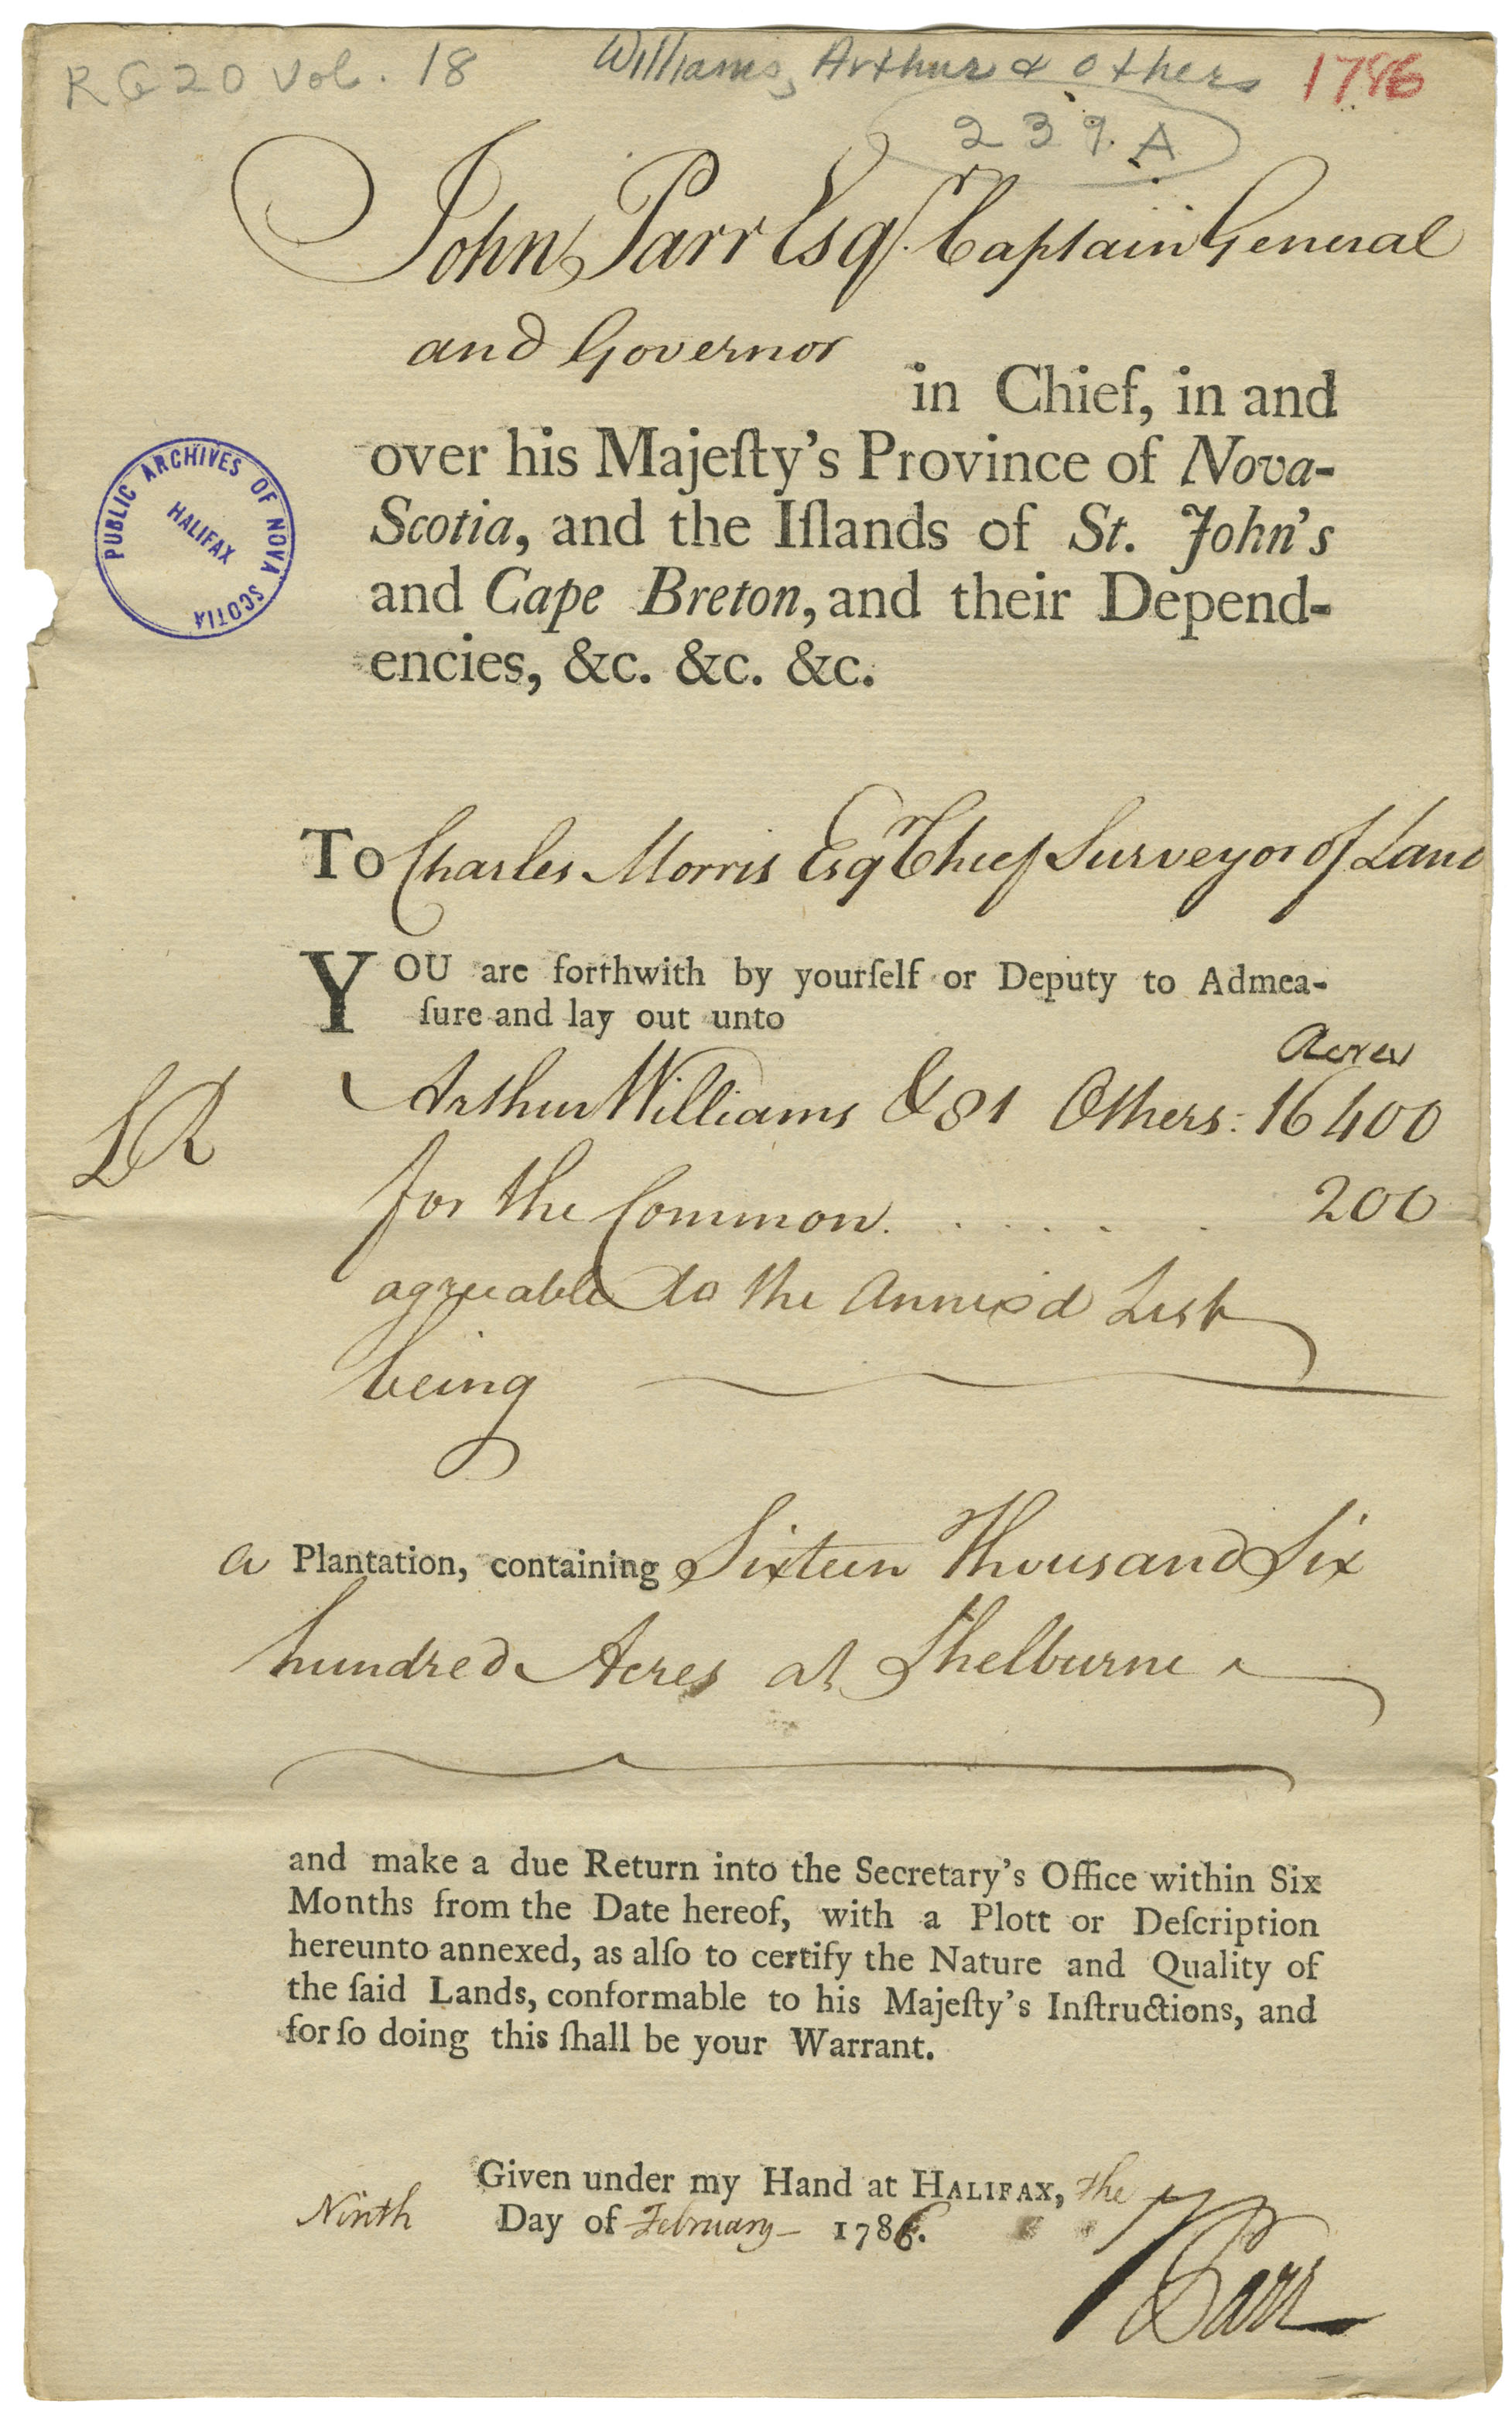 RG 20 Vol. 18 Williams, Arthur & others 1786
239.A
John Parr Esqr. Captain General
and Governor
in Chief, in and
over his Majeſty's Province of Nova-
Scotia, and the Iſlands of St. John's
and Cape Breton, and their Depend-
encies, &c. &c. &c.
PUBLIC ARCHIVES OF NOVA SCOTIA
HALIFAX
To Charles Morris Esqr Chief Surveyor of Land
YOU are forthwith by yourſelf or Deputy to Admea-
ſure and lay out unto
Acres
Arthur Williams & 81 Others: 16400
for the Common. . . . . . 200
agreeable to the Annex'd List
being
a Plantation, containing Sixteen Thousand Six
hundred Acres at Shelburne
and make a due Return into the Secretary's Office within Six
Months from the Date hereof, with a Plott or Deſcription
hereunto annexed, as alſo to certify the Nature and Quality of
the ſaid Lands, conformable to his Majeſty's Inſtructions, and
for ſo doing this ſhall be your Warrant.
Given under my Hand at HALIFAX, the
Ninth Day of February 1786.
Parr